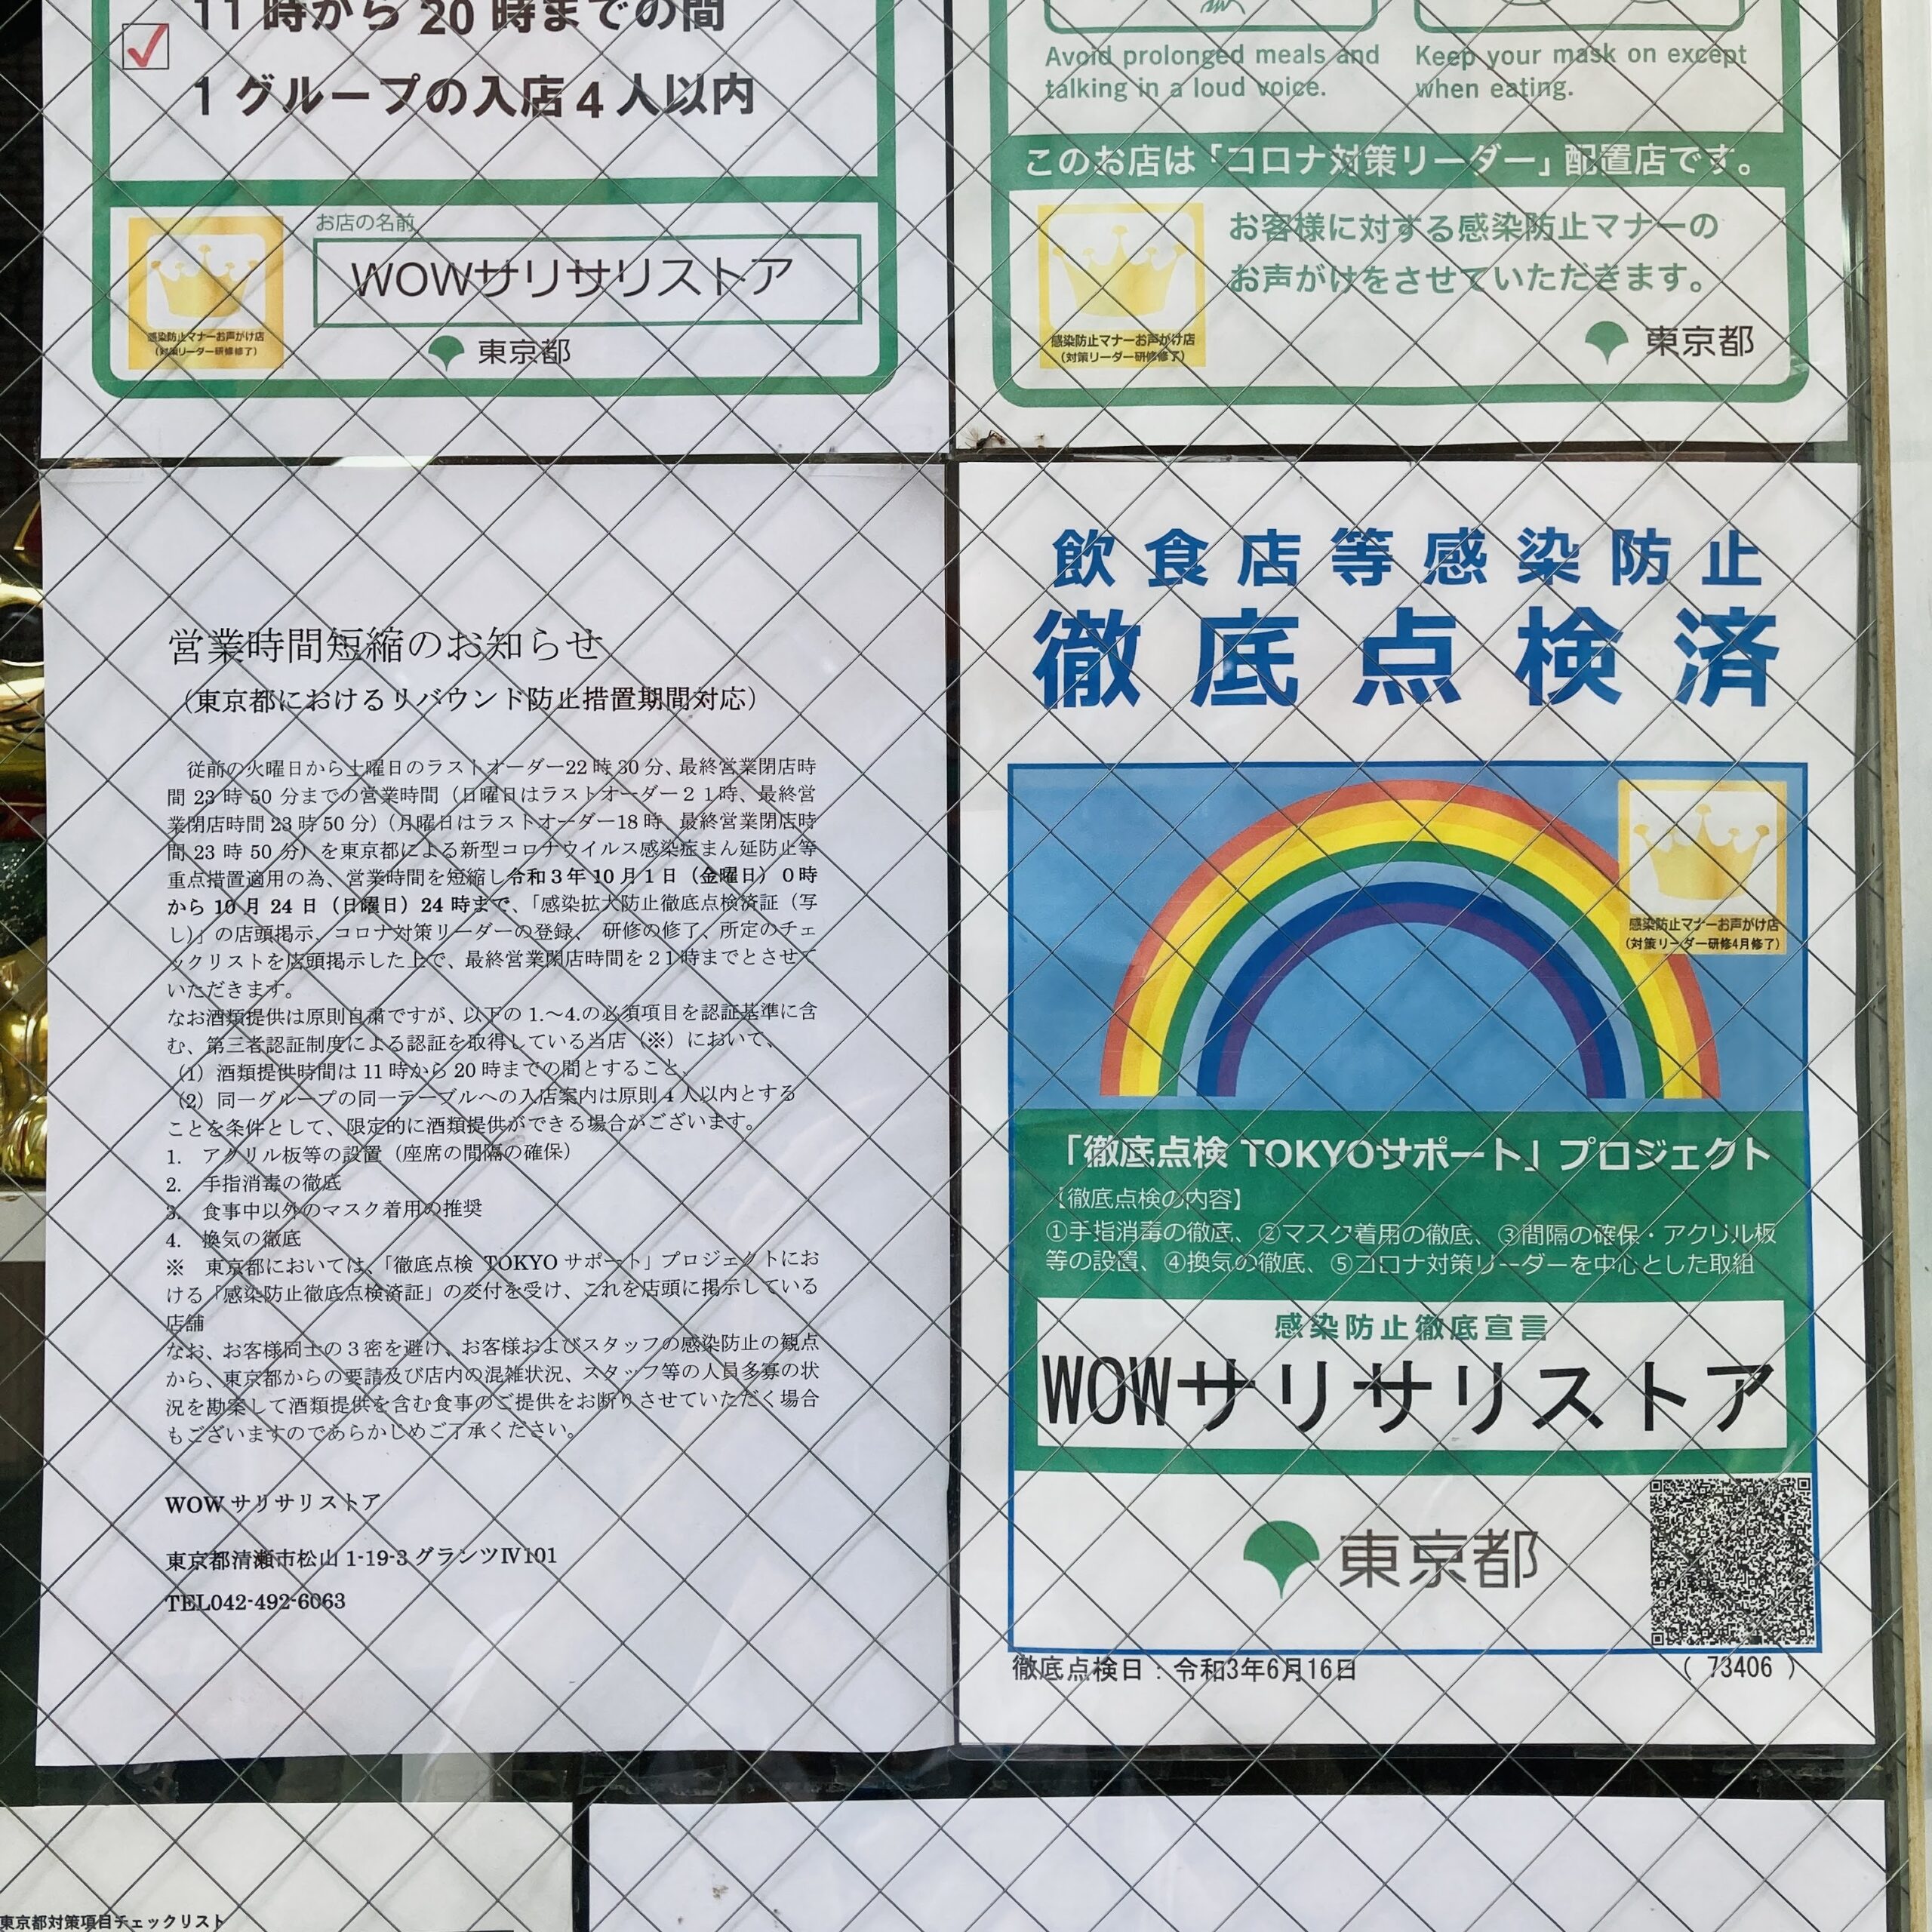 11時から20時までの間
1グループの入店4人以内
お店の名前
WOWサリサリストア
感染防止マナーお声がけ店
(対策リーダー研修修了)
東京都
Avoid prolonged meals and
talking in a loud voice.
Keep your mask on except
when eating.
このお店は「コロナ対策リーダー」配置店です。
お客様に対する感染防止マナーの
お声がけをさせていただきます。
感染防止マナーお声がけ店
(対策リーダー研修修了)
東京都
営業時間短縮のお知らせ
（東京都におけるリバウンド防止措置期間対応）
従前の火曜日から土曜日のラストオーダー22時30分、最終営業閉店時
間 23 時 50 分までの営業時間（日曜日はラストオーダー２１時、最終営
業閉店時間 23時50分）（月曜日はラストオーダー18時、最終営業閉店時
間 23 時 50 分）を東京都による新型コロナウイルス感染症まん延防止等
重点措置適用の為、営業時間を短縮し令和３年10月１日（金曜日）０時
から10月24日（日曜日）24時まで、「感染拡大防止徹底点検済証（写
し）」の店頭掲示、コロナ対策リーダーの登録、 研修の修了、所定のチェ
ックリストを店頭掲示した上で、最終営業閉店時間を２１時までとさせて
いただきます。
なお酒類提供は原則自粛ですが、以下の 1.～4.の必須項目を認証基準に含
む、第三者認証制度による認証を取得している当店（※）において、
（1）酒類提供時間は 11 時から 20 時までの間とすること、
（2）同一グループの同一テーブルへの入店案内は原則 4 人以内とする
ことを条件として、限定的に酒類提供ができる場合がございます。
1. アクリル板等の設置（座席の間隔の確保）
2. 手指消毒の徹底
3. 食事中以外のマスク着用の推奨
4. 換気の徹底
※ 東京都においては、「徹底点検 TOKYO サポート」プロジェクトにお
ける「感染防止徹底点検済証」の交付を受け、これを店頭に掲示している
店舗
なお、お客様同士の３密を避け、お客様およびスタッフの感染防止の観点
から、東京都からの要請及び店内の混雑状況、スタッフ等の人員多寡の状
況を勘案して酒類提供を含む食事のご提供をお断りさせていただく場合
もございますのであらかじめご了承ください。
WOW サリサリストア
東京都清瀬市松山 1-19-3 グランツⅣ101
TEL042-492-6063
飲食店等感染防止
徹底点検済
感染防止マナーお声がけ店
(対策リーダー研修4月修了)
「徹底点検 TOKYOサポート」プロジェクト
【徹底点検の内容】
①手指消毒の徹底、②マスク着用の徹底、③間隔の確保・アクリル板
等の設置、④換気の徹底、⑤コロナ対策リーダーを中心とした取組
感染防止徹底宣言
WOWサリサリストア
東京都
徹底点検日：令和3年6月16日
( 73406 )
東京都対策項目チェックリスト